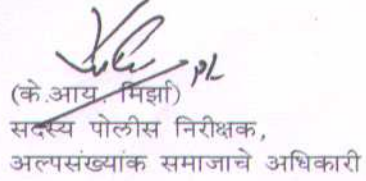 (के.आय. मिर्झा)
सदस्य पोलीस निरीक्षक,
अल्पसंख्यांक समाजाचे अधिकारी